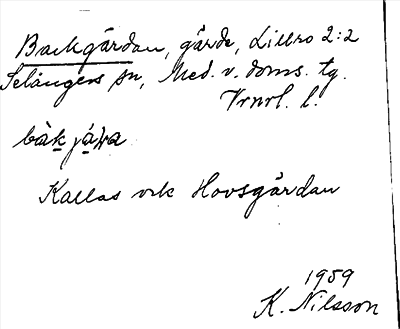 Backgårdan, gärde, Lillro 2:2
Selångers sn, Med. v. doms. tg.
Vrnrl. l.
bàk
Kallas vek Hovsgårdan
1959
K. Nilsson